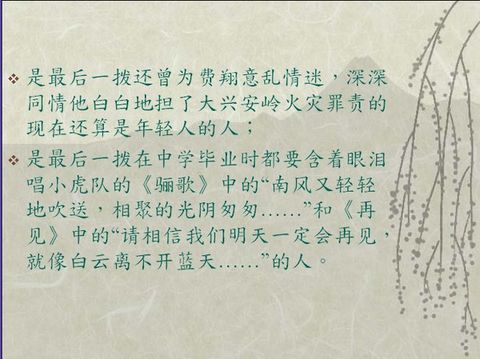 ❖ 是最后一拨还曾为费翔意乱情迷，深深
同情他白白地担了大兴安岭火灾罪责的
现在还算是年轻人的人；
❖ 是最后一拨在中学毕业时都要含着眼泪
唱小虎队的《骊歌》中的“南风又轻轻
地吹送，相聚的光阴匆匆……”和《再
见》中的“请相信我们明天一定会再见，
就像白云离不开蓝天……”的人。